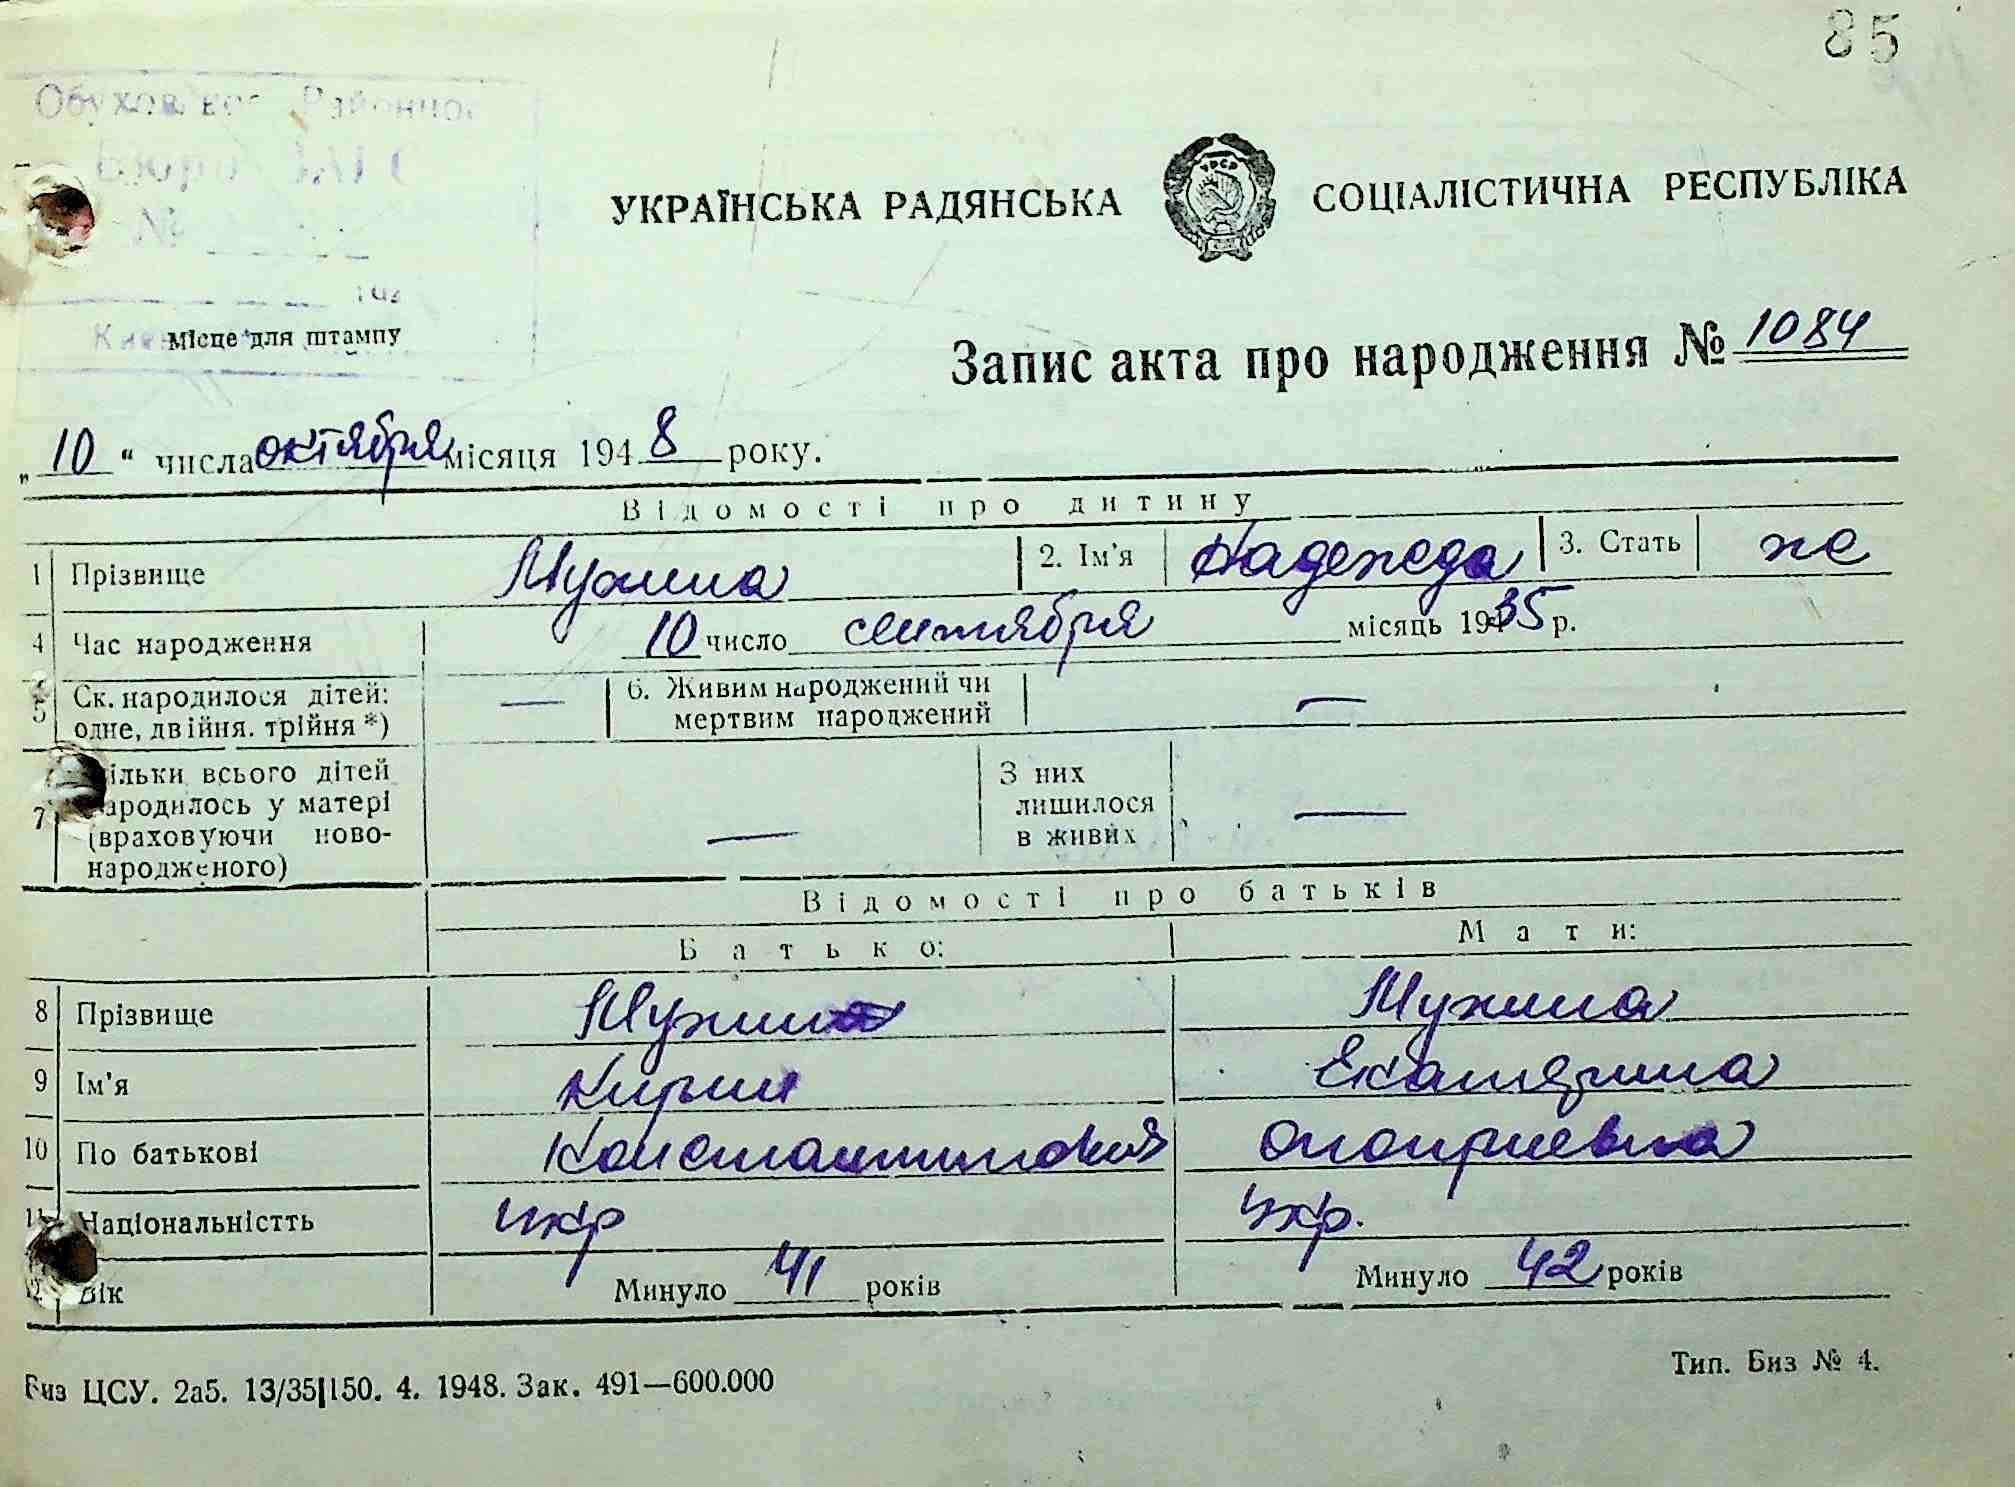 85
Обухов Районно
Бюро ЗАГС
№
УКРАЇНСЬКА РАДЯНСЬКА СОЦІАЛІСТИЧНА РЕСПУБЛІКА
Місце для штампу
Запис акта про народження № 1084
„ 10 “ числа октября місяця 1948 року.
Відомості про дитину
1 Прізвище Мухина 2. Ім'я Надежда 3. Стать же
4 Час народження 10 число сентября місяць 1935 р.
5 Ск. народилося дітей: одне, двійня. трійня *) — 6. Живим народжений чи мертвим народжений —
7 ільки всього дітей народилось у матері (враховуючи ново-народженого) — З них лишилося в живих —
Відомості про батьків
Батько: Мати:
8 Прізвище Мухин Мухина
9 Ім'я Кирил Екатерина
10 По батькові Константинович Оноприевна
11 Національністть укр укр.
12 Вік Минуло 41 років Минуло 42 років
Биз ЦСУ. 2а5. 13/35|150. 4. 1948. Зак. 491—600.000 Тип. Биз № 4.